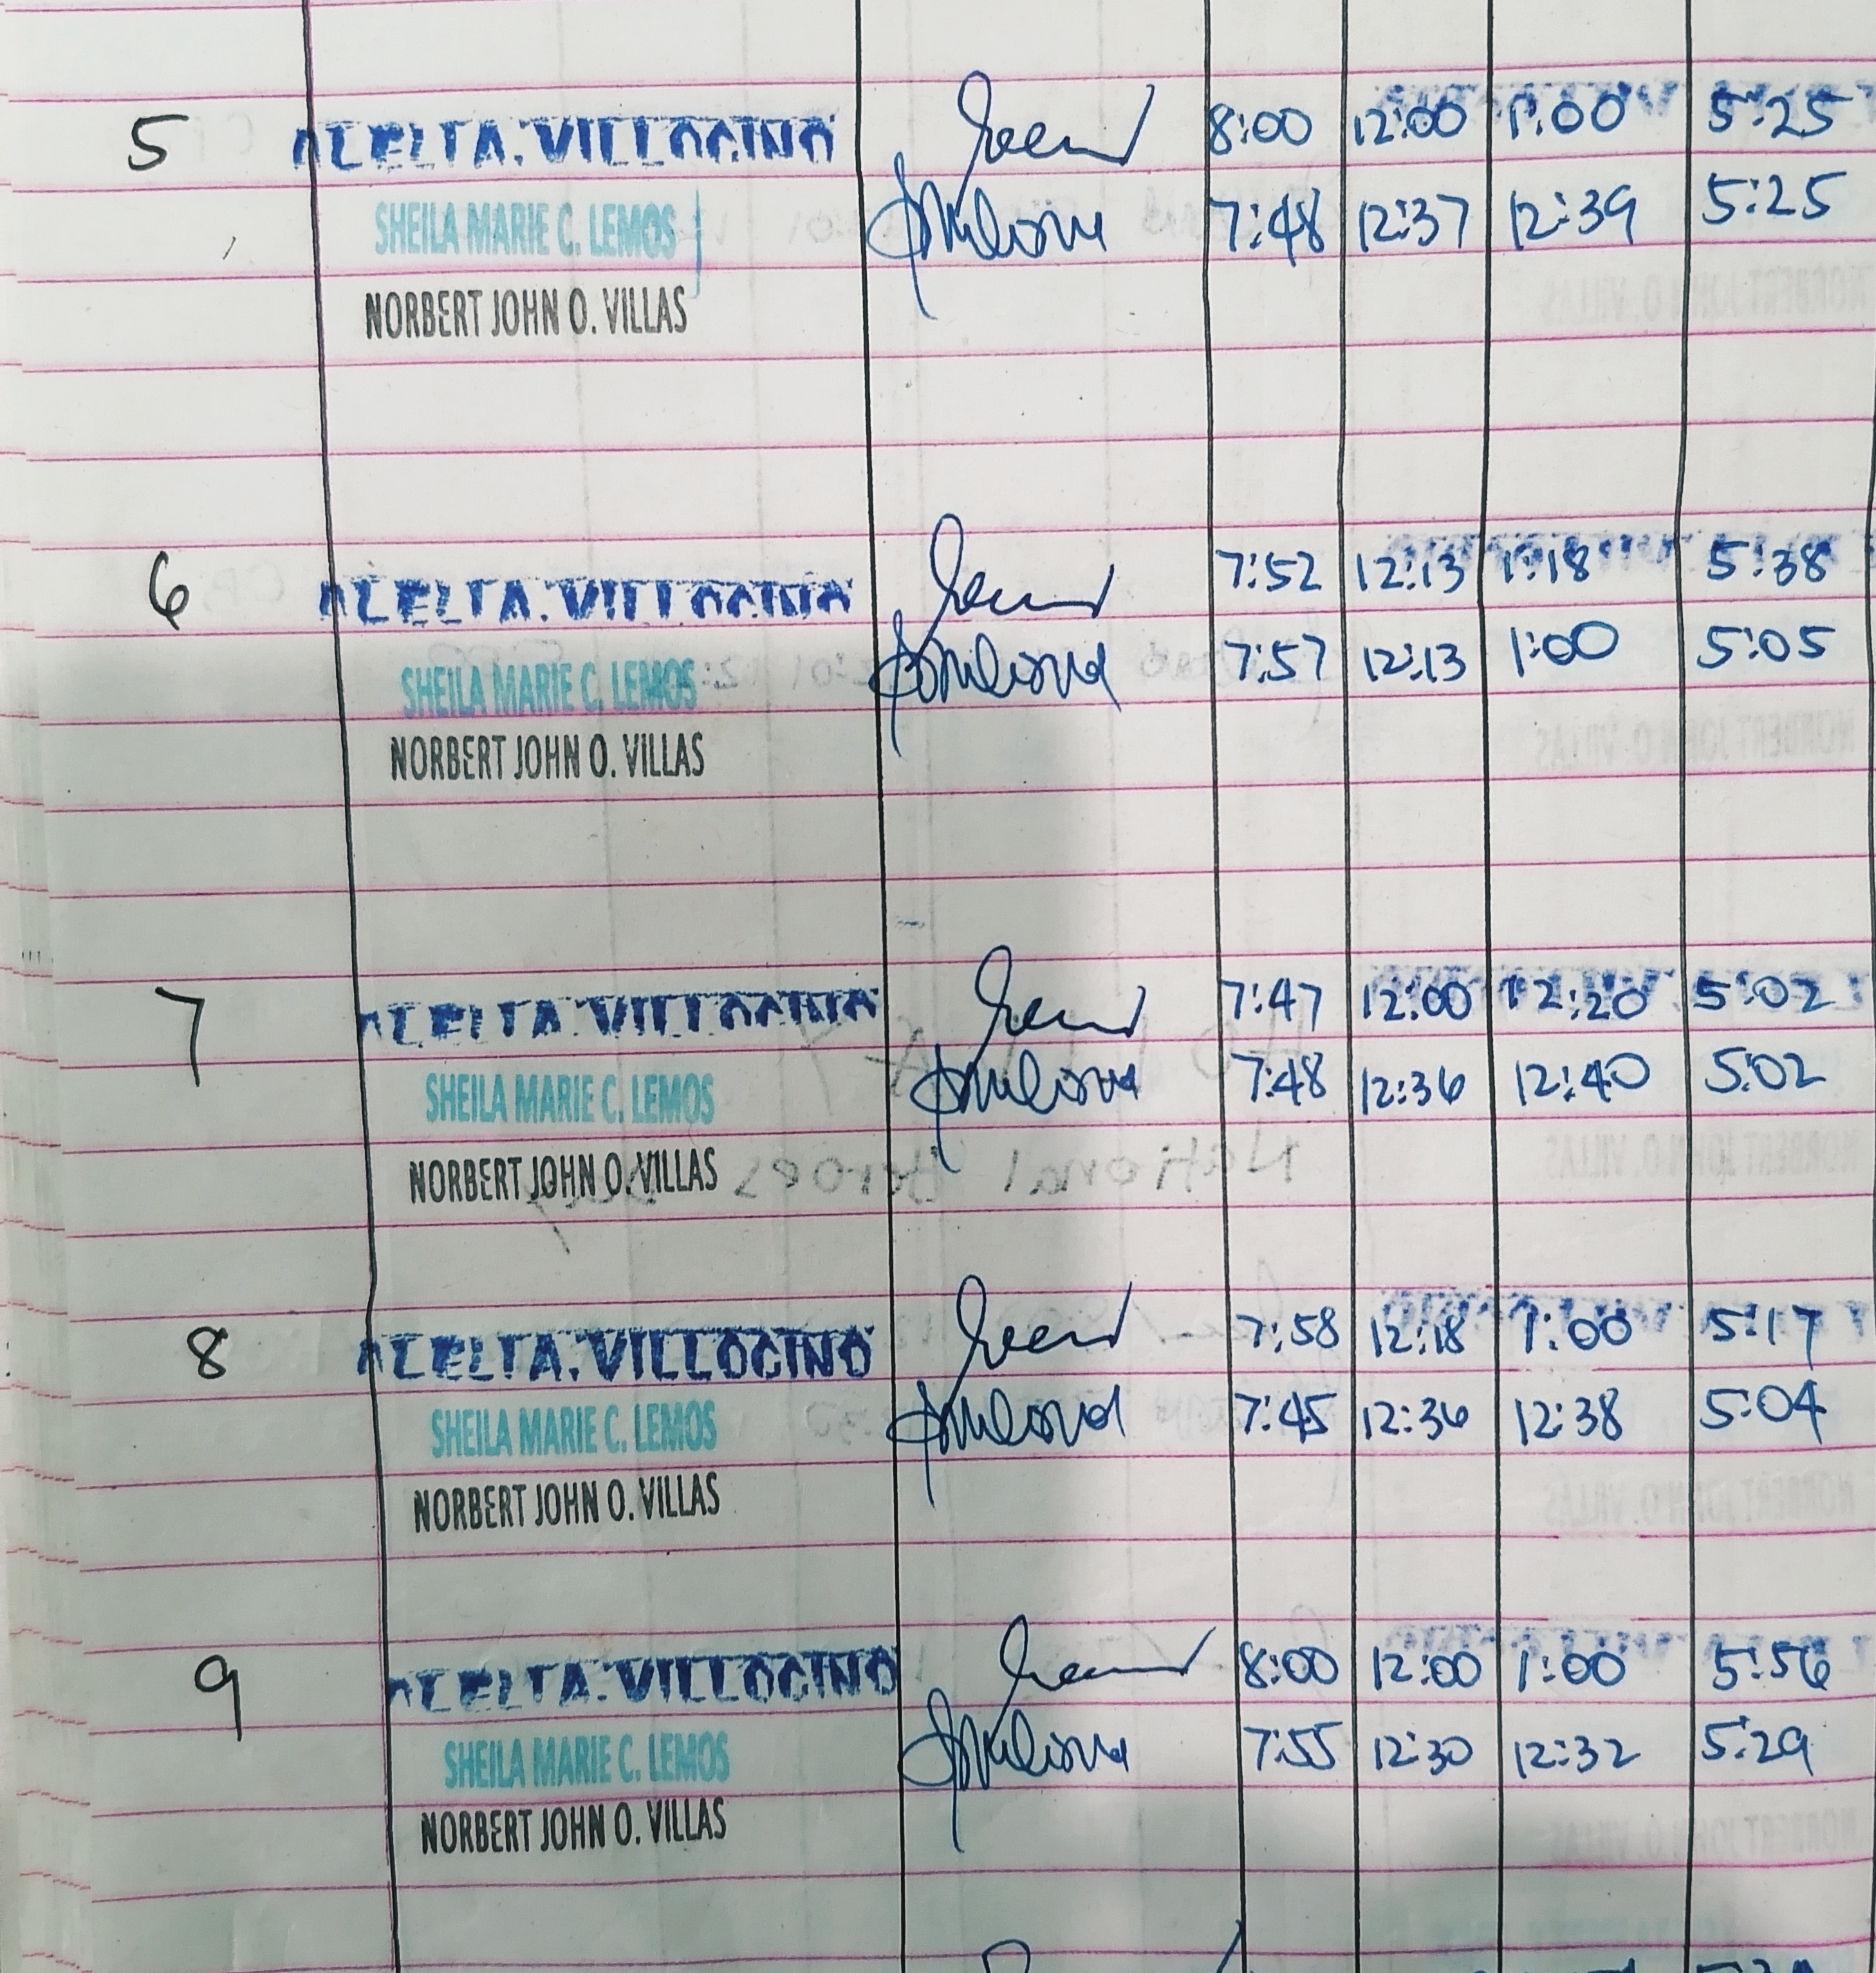 5 VILLOCINO 8:00 12:00 1:00 5:25
SHEILA MARIE C. LEMOS 7:48 12:37 12:39 5:25
NORBERT JOHN O. VILLAS
6 VILLOCINO 7:52 12:13 1:18 5:38
SHEILA MARIE C. LEMOS 7:57 12:13 1:00 5:05
NORBERT JOHN O. VILLAS
7 VILLOCINO 7:47 12:00 12:20 5:02
SHEILA MARIE C. LEMOS 7:48 12:36 12:40 5:02
NORBERT JOHN O. VILLAS
8 VILLOCINO 7:58 12:18 1:00 5:17
SHEILA MARIE C. LEMOS 7:45 12:36 12:38 5:04
NORBERT JOHN O. VILLAS
9 VILLOCINO 8:00 12:00 1:00 5:56
SHEILA MARIE C. LEMOS 7:55 12:30 12:32 5:29
NORBERT JOHN O. VILLAS